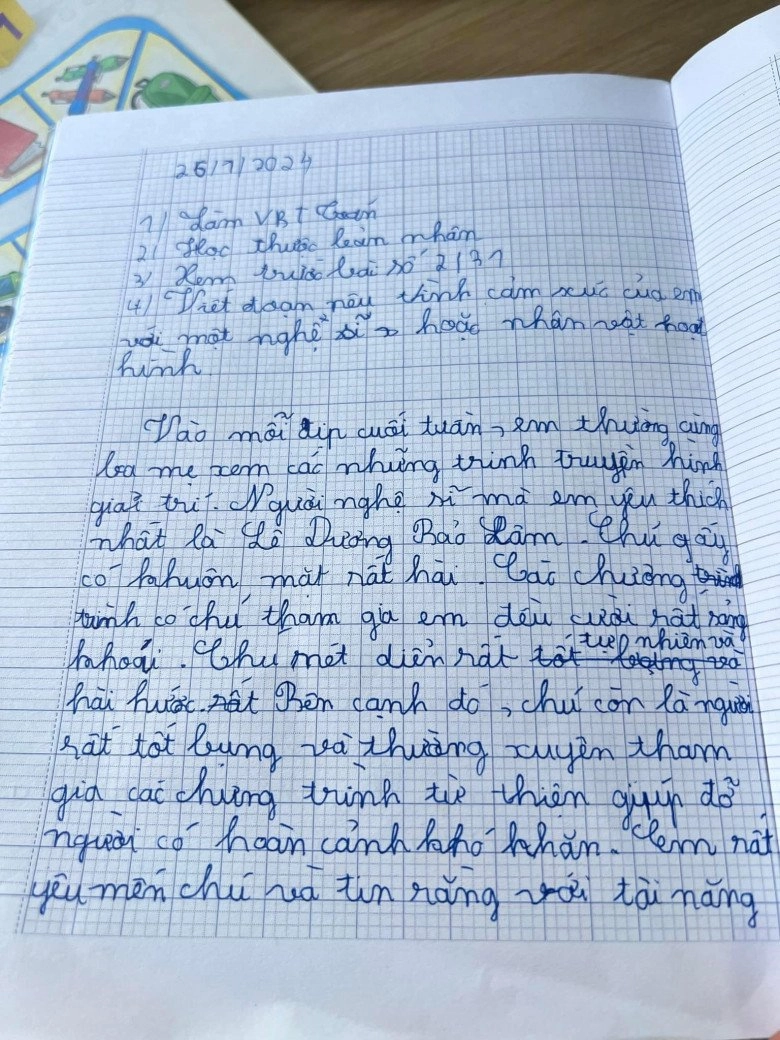 25/7/2024
1) Làm VBT Toán
2) Học thuộc nhân
3) Xem trước bài số 2131
4) Viết đoạn nêu tình cảm xúc của em
với một nghệ sĩ hoặc nhân vật hoạt
hình.
Vào mỗi dịp cuối tuần, em thường cùng
ba mẹ xem các những trinh truyền hình
giải trí. Người nghệ sĩ mà em yêu thích
nhất là Lê Dương Bảo Lâm. Chú gây
có khuôn mặt rất hài. Các chương
trình có chú tham gia em đều cười rất sảng
khoái. Chu mét diễn rất tự nhiên và
hài hước. Bên cạnh đó, chú còn là người
rất tốt bụng và thường xuyên tham
gia các chưng trình từ thiện giúp đỡ
người có hoàn cảnh khó khăn. em rất
yêu mến chú và tin rằng với tài năng